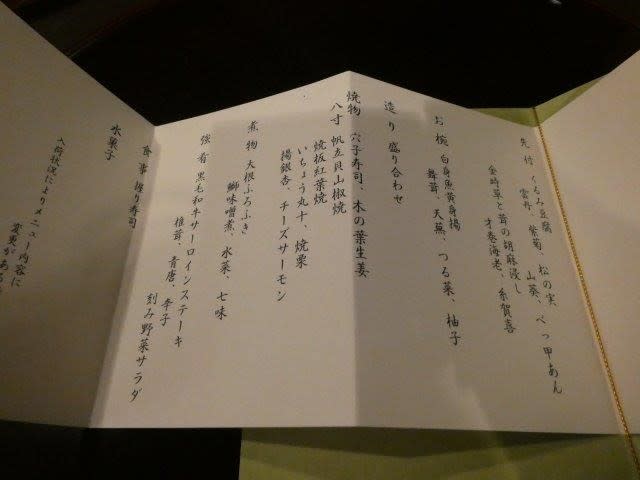 先付 くるみ豆腐
雲丹、紫菊、松の実
山葵、べっ甲あん
金時草と茸の胡麻浸し
才巻海老、糸賀喜
お椀 白身魚黄身揚
舞茸、天蕪、つる菜、柚子
造り 盛り合わせ
焼物 穴子寿司、木の葉生姜
八寸 帆立貝山椒焼
焼板紅葉焼
いちょう丸十、焼栗
揚銀杏、チーズサーモン
煮物 大根ふろふき
鰤味噌煮、水菜、七味
強肴 黒毛和牛サーロインステーキ
椎茸、青唐、辛子
刻み野菜サラダ
食事 握り寿司
水菓子
入荷状況によりメニュー内容に
変更がある